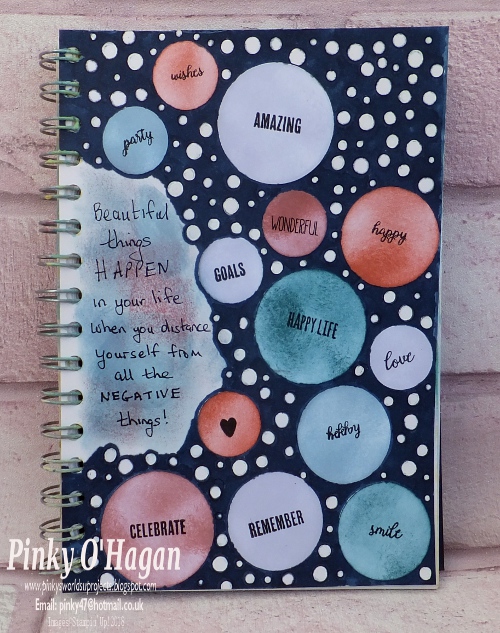 wishes
AMAZING
party
Beautiful
things
HAPPEN
in your life
when you distance
yourself from
all the
NEGATIVE
things!
WONDERFUL
happy
GOALS
HAPPY LIFE
love
CELEBRATE
REMEMBER
smile
Pinky O'Hagan
www.pinkysworldsuprojects.blogspot.com
Email: pinky47@hotmail.co.uk
Images Stampin' Up! 2018